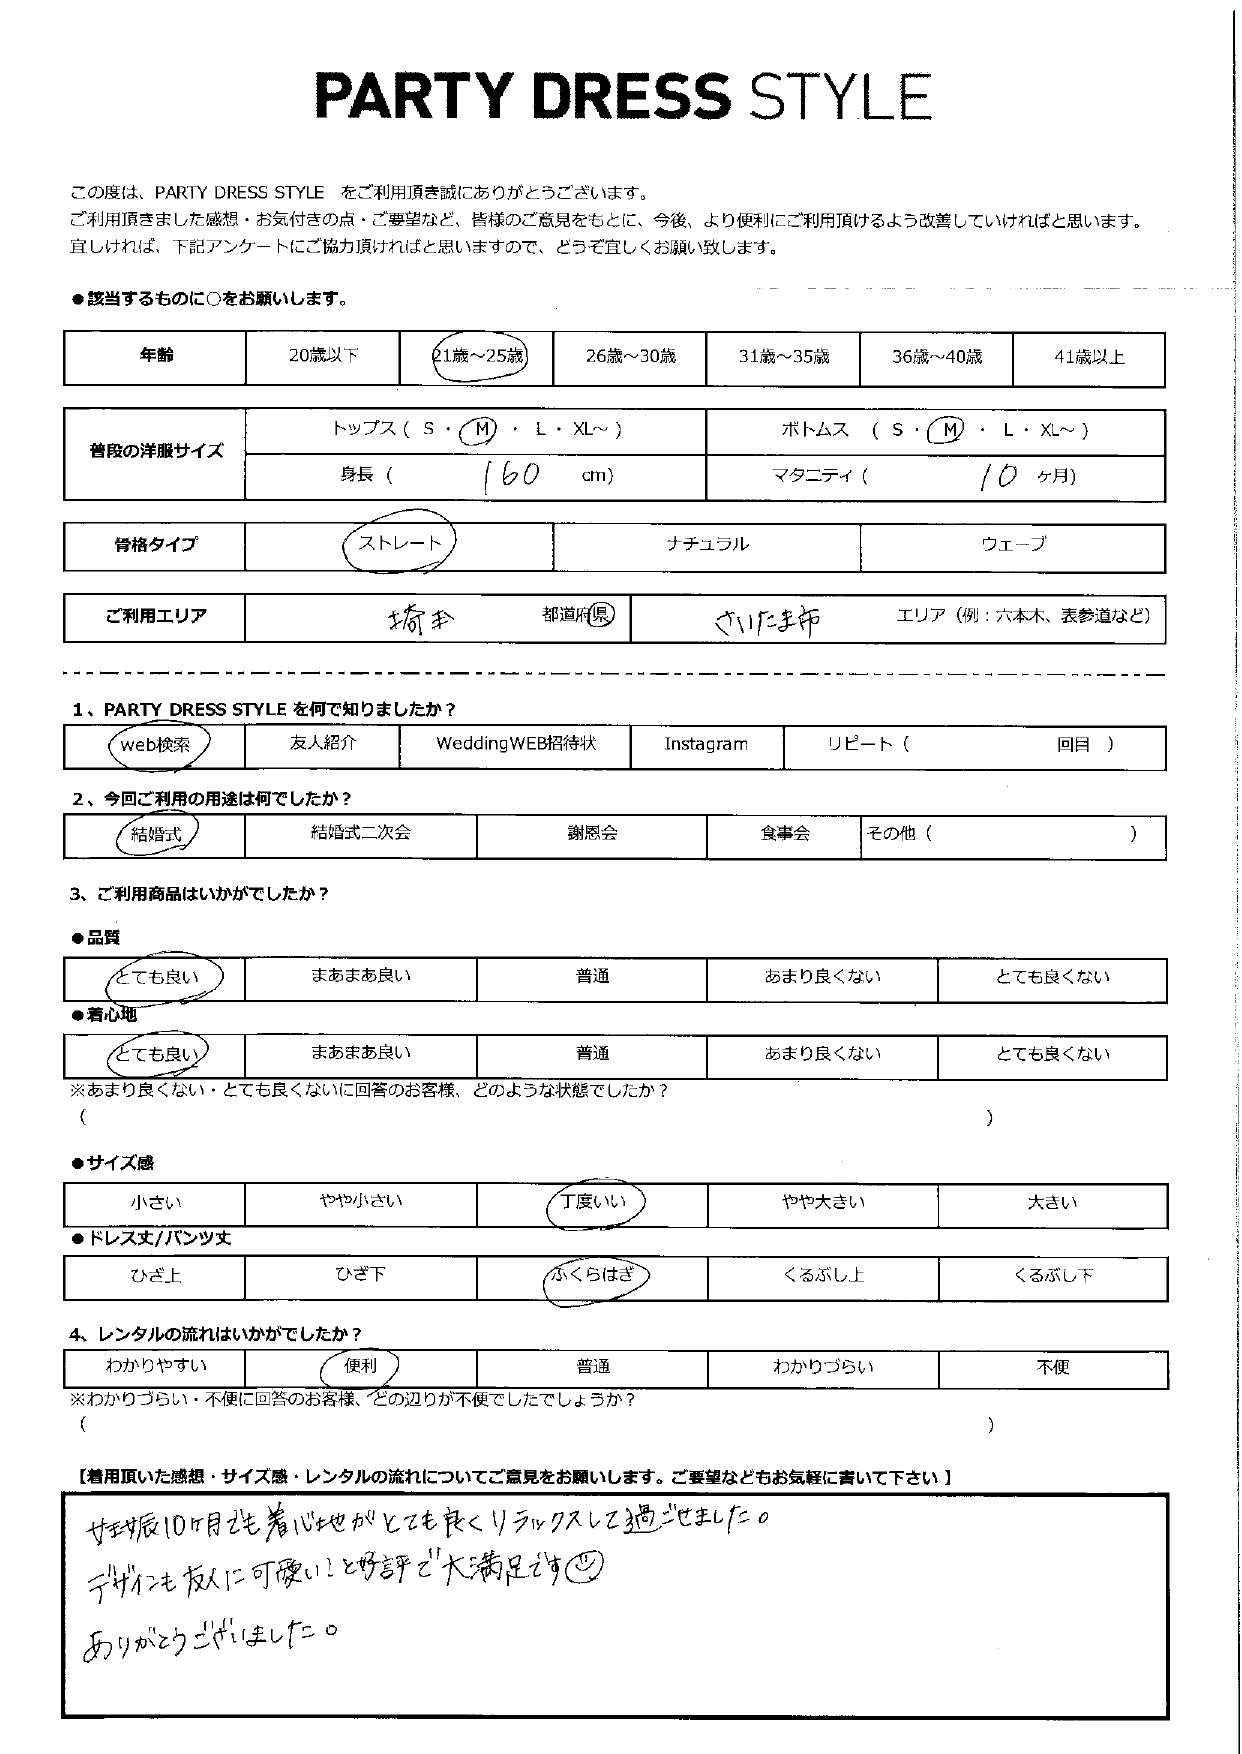 PARTY DRESS STYLE
この度は、PARTY DRESS STYLE をご利用頂き誠にありがとうございます。
ご利用頂きました感想・お気付きの点・ご要望など、皆様のご意見をもとに、今後、より便利にご利用頂けるよう改善していければと思います。
宜しければ、下記アンケートにご協力頂ければと思いますので、どうぞ宜しくお願い致します。
●該当するものに○をお願いします。
年齢 20歳以下 21歳～25歳 26歳～30歳 31歳～35歳 36歳～40歳 41歳以上
普段の洋服サイズ トップス（ S ・ M ・ L ・ XL～ ） ボトムス （ S ・ M ・ L ・ XL～ ）
身長（ 160 cm） マタニティ（ 10 ヶ月）
骨格タイプ ストレート ナチュラル ウェーブ
ご利用エリア 埼玉 都道府県 さいたま市 エリア（例：六本木、表参道など）
1、PARTY DRESS STYLE を何で知りましたか？
web検索 友人紹介 WeddingWEB招待状 Instagram リピート（ 回目 ）
2、今回ご利用の用途は何でしたか？
結婚式 結婚式二次会 謝恩会 食事会 その他（ ）
3、ご利用商品はいかがでしたか？
●品質
とても良い まあまあ良い 普通 あまり良くない とても良くない
●着心地
とても良い まあまあ良い 普通 あまり良くない とても良くない
※あまり良くない・とても良くないに回答のお客様、どのような状態でしたか？
（ ）
●サイズ感
小さい やや小さい 丁度いい やや大きい 大きい
●ドレス丈/パンツ丈
ひざ上 ひざ下 ふくらはぎ くるぶし上 くるぶし下
4、レンタルの流れはいかがでしたか？
わかりやすい 便利 普通 わかりづらい 不便
※わかりづらい・不便に回答のお客様、どの辺りが不便でしたでしょうか？
（ ）
【着用頂いた感想・サイズ感・レンタルの流れについてご意見をお願いします。ご要望などもお気軽に書いて下さい 】
妊娠10ヶ月でも着心地がとても良くリラックスして過ごせました。
デザインも友人に可愛い！と好評で大満足です☺
ありがとうございました。